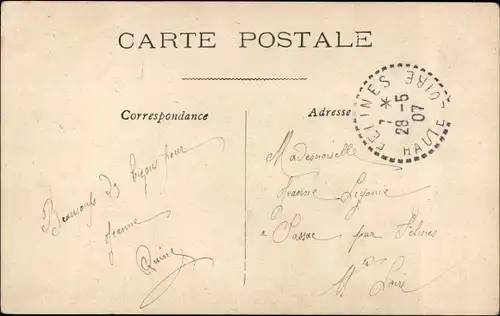 CARTE POSTALE
Correspondance
Adresse
FELINES HAUTE-LOIRE
7 *
28-5
07
Beaucoup de bizous pour
Jeanne
Mademoiselle
Jeanne
à Sassac par Félines
Hte Loire